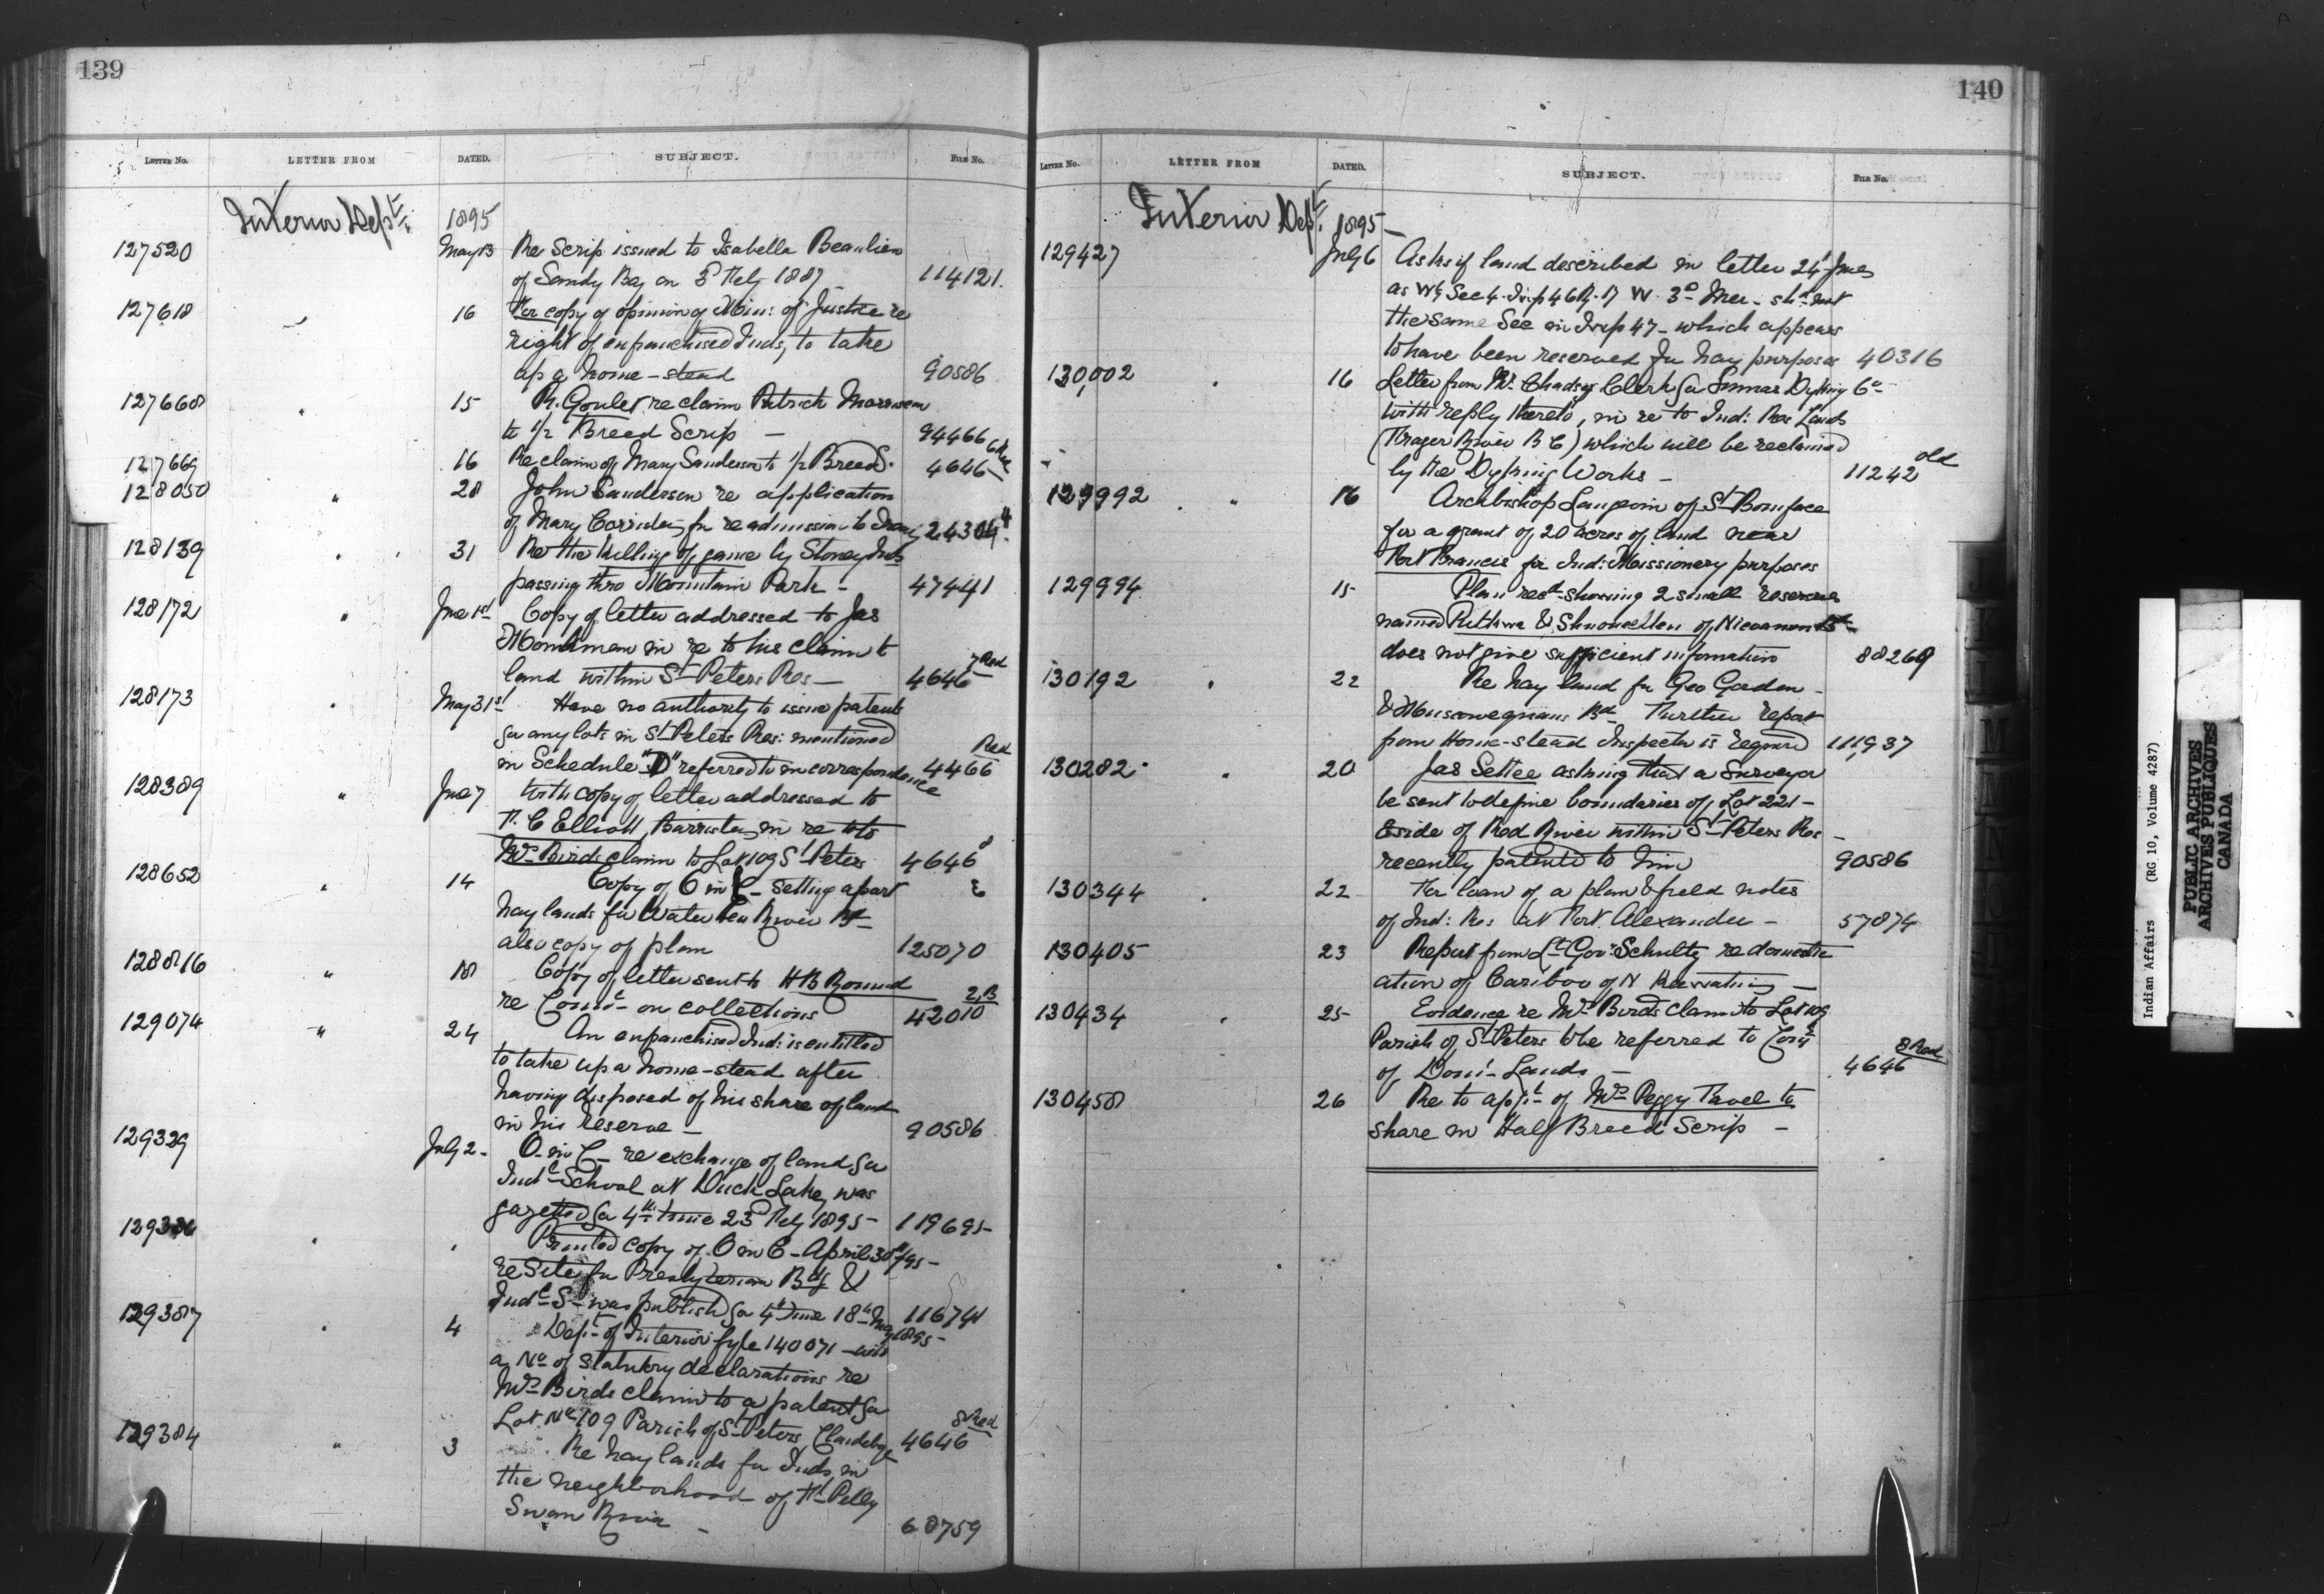 139
LETTER No. LETTER FROM DATED. SUBJECT. FILE No.
Interior Dept. 1895
127520 May 13 Re Scrip issued to Isabella Beaulieu
of Sandy Bay on 5 Feby 1887 - 114121.
127618 " 16 For copy of opinion of Min: of Justice re
right of enfranchised Inds, to take
up a home-stead 90586
127668 " 15 R. Goulet re claim Patrick Morrisseau
to 1/2 Breed Scrip - 94466
127669 16 Re claim of Mary Sanderson to 1/2 Breed S. 4646
128050 " 28 John Sanderson re application
of Mary for readmission to Treaty 24304
128139 " 31 Re the killing of game by Stoney Inds
passing thro Mountain Park - 47441
128172 " June 1st Copy of letter addressed to Jas
Monkman in re to his claim to
land within St Peters Res - 4646 7 Red
128173 " May 31st Have no authority to issue patents
for any lots in St Peters Res: mentioned
in Schedule "D" referred to in correspondence 4466 Red
128389 " June 7 With copy of letter addressed to
C Elliott, Barrister, in re to
Mrs Birds claim to Lot 109 St Peters 4646 8
128652 " 14 Copy of O in C - setting apart
hay lands for Water Hen River Bd
also copy of plan 125070
128816 " 18 Copy of letter sent to H B Round
re Comn on collections 42010 2.B
129074 " 24 An enfranchised Ind: is entitled
to take up a home-stead after
having disposed of his share of land
in his reserve - 90586
129329 July 2 - O. in C - re exchange of land for
Indl School at Duck Lake, was
gazetted for 4th time 23d Feby 1895 - 119695-
" Printed copy of O in C - April 30th/95 -
re Site for Presbyterian Bdg &
Indl S - was publishd for 4th time 18th May 1895 - 116741
129387 " 4 Dept of Interior fyle 140071 - with
a No of statutory declarations re
Mrs Birds claim to a patent for
Lot No 109 Parish of St Peters, Clandeboye 4646 8 Red
129384 " 3 Re hay lands for Inds, in
the neighborhood of Ft Pelly
Swan River - 68759
140
LETTER No. LETTER FROM DATED. SUBJECT. FILE No.
Interior Dept. 1895 -
129427 July 6 Asks if land described in letter 24 June
as W½ Sec 4. Twp 46 R. 17 W. 3d Mer - shd not
the same Sec in Twp 47 - which appears
to have been reserved for hay purposes 40316
130,002 " 16 Letter from Mr. Chadsey Clerk for Sumas Dyking Co -
with reply thereto, in re to Ind: Res Lands
(Frazer River B C) which will be reclaimed
by the Dyking Works - 11242 old
129992 " 16 Archbishop Langevin of St Boniface
for a grant of 20 acres of land near
Fort Francis for Ind: Missionery purposes
129994 15 Plan recd showing 2 small reserves
named &  of
does not give sufficient information 88269
130192 " 22 Re hay land for Geo Gordon -
& Muscowequans Bd Further report
from Home-stead Inspector is required 111,937
130282 " 20 Jas Settee asking that a Surveyor
be sent to define boundaries of Lot 221 -
E side of Red River within St Peters Res -
recently patented to him 90586
130344 " 22 For loan of a plan & field notes
of Ind: Res at Fort Alexander - 57874
130405 23 Report from Lt Govr Schultz re domestic
ation of Cariboo of N Reservations -
130434 " 25 Evidence re Mrs Birds claim to Lot 109
Parish of St Peters to be referred to Comr
of Domn Lands - 4646 8 Red
130458 26 Re to applt of Mrs Peggy Favel to
share in Half Breed Scrip -
Indian Affairs (RG 10, Volume 4287)
PUBLIC ARCHIVES
ARCHIVES PUBLIQUES
CANADA